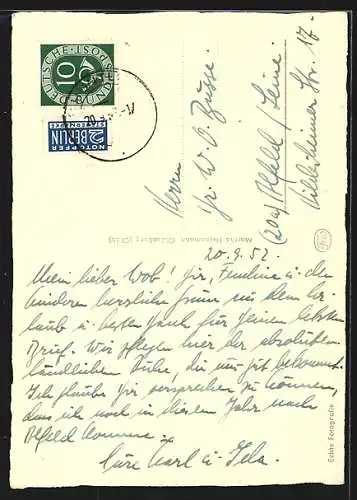 DEUTSCHE BUNDESPOST
10
20.9.
NOTOPFER
2 BERLIN
STEUERMARKE
Herrn
W. O. Busse
(20a) Alfeld / Leine
Hildesheimer Str. 17
Martha Heinemann, Oldenburg (Oldb)
Echte Fotografie
20.9.52.
Mein lieber Wob! Dir, u. den
anderen herzliche Grüße aus dem Ur-
laub u. besten Dank für Deinen letzten
Brief. Wir pflegen hier der absoluten
ländlichen Ruhe, die uns gut bekommt.
Ich glaube Dir versprechen zu können,
dass ich noch in diesem Jahr nach
Alfeld komme
Eure Karl u.